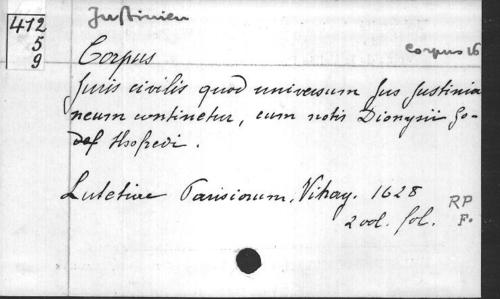 Justinien
412
5
9
Corpus
corpus 16
Juris civilis quod universum Jus Justinia
neum continetur, cum notis Dionysii Go-
thofredi.
Lutetiae Parisiorum, Vitray. 1628
2 vol. fol.
RP
F.